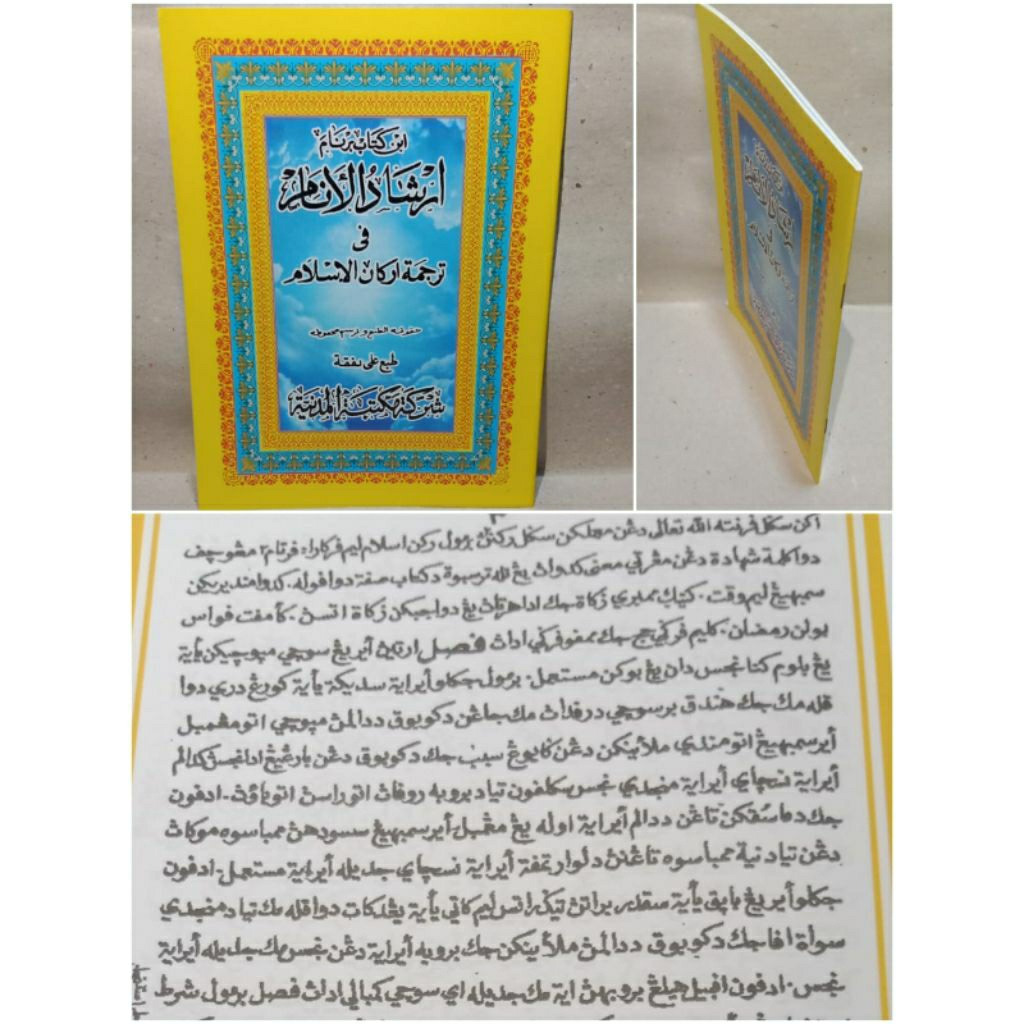 اين كتاب برنام
ارشاد الأنام
فى
ترجمة اركان الاسلام
حقوق الطبع ورسم محفوظه
طبع على نفقة
شركة مكتبة المدنية
اكن سكل فرنته الله تعالى دغن مڠملكن سكل ركنڽ برمول ركن اسلام ليم فركارا٠ فرتام٢ مڠوچف
دوا كلمة شهادة دغن مڠرتي معنى كدواڽ يڠ تله ترسبوة دكتاب صفة دوا فوله٠ كدوا منديريكن
سمبهيڠ ليم وقت٠ كتيݢ ممبري زكاة جك ادا هرتاڽ يڠ دواجبكن زكاة اتسڽ٠ كأمفت فواس
بولن رمضان٠ كليم فركي حج جك ممفو فركي اداڽ فصل ارتين أير يڠ سوچي مپوچيكن يأية
يڠ بلوم كنا نجس دان يڠ بوكن مستعمل٠ برمول جكلو أيراية سديكة يأية كورڠ دري دوا
قله مك جك هندق برسوچي درفداڽ مك جاڠن دكوبوق ددالمڽ مپوچي اتو مڠمبل
أير سمبهيڠ اتو مندي ملأينكن دغن كايوڠ سبب جك دكوبوق دغن بارڠيڠ ادا نجسڽ كدالم
أيراية نسچاي أيراية منجدي نجس سكلفون تياد بروبه روفاڽ اتو راسڽ اتو باوڽ٠ ادفون
جك دماسقكن تاڠن ددالم أيراية اوله يڠ مڠمبل أير سمبهيڠ سسودهڽ ممباسوه موكاڽ
دغن تياد نية ممباسوه تاڠنڽ دلوار تمفة أيراية نسچاي جديله أيراية مستعمل٠ ادفون
جكلو أير يڠ باپق يأية سقدر براتڽ تيݢ راتس ليم كاتي يأية يڠدكات دوا قله مك تياد منجدي
سواة افا جك دكوبوق ددالمڽ ملأينكن جك بروبه أيراية دغن نجس مك جديله أيراية
نجس٠ ادفون افبيل هيلڠ بروبهڽ اية مك جديله اي سوچي كمبالي اداڽ فصل برمول شرط